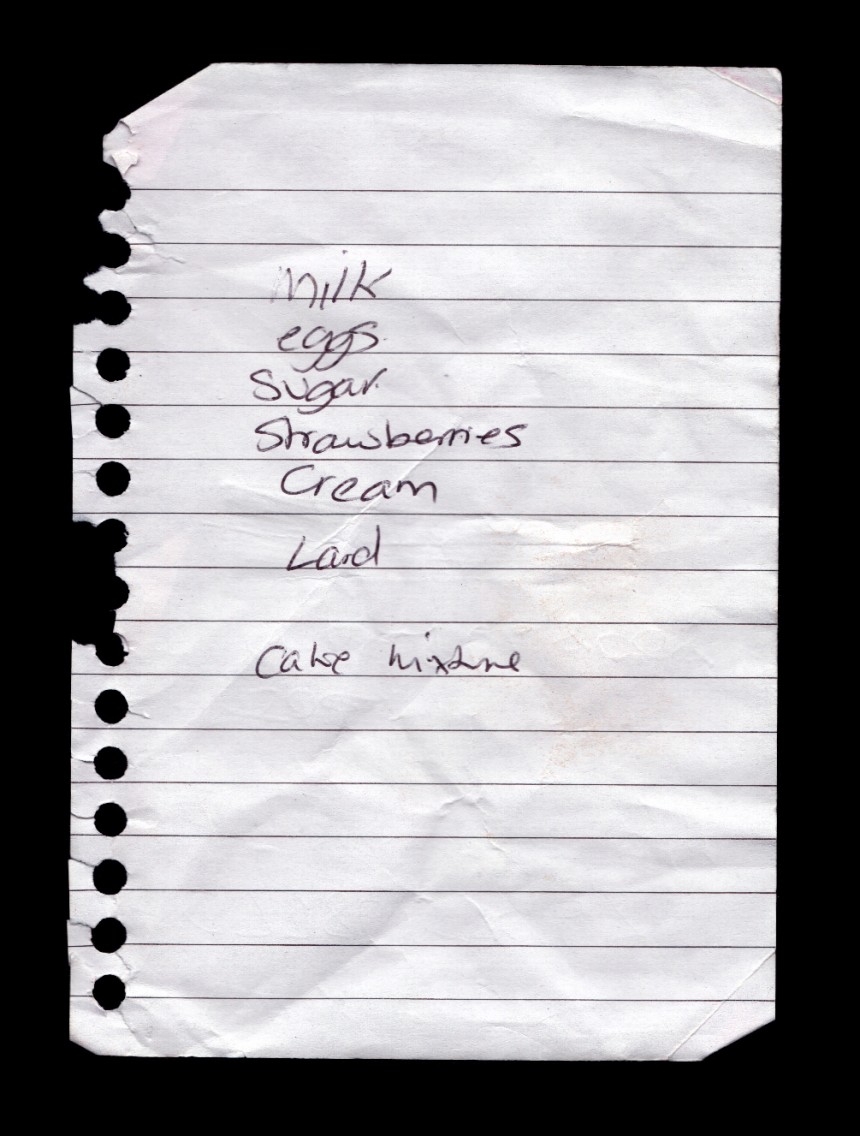 Milk
eggs
Sugar
Strawberries
Cream
Lard
Cake Mixture